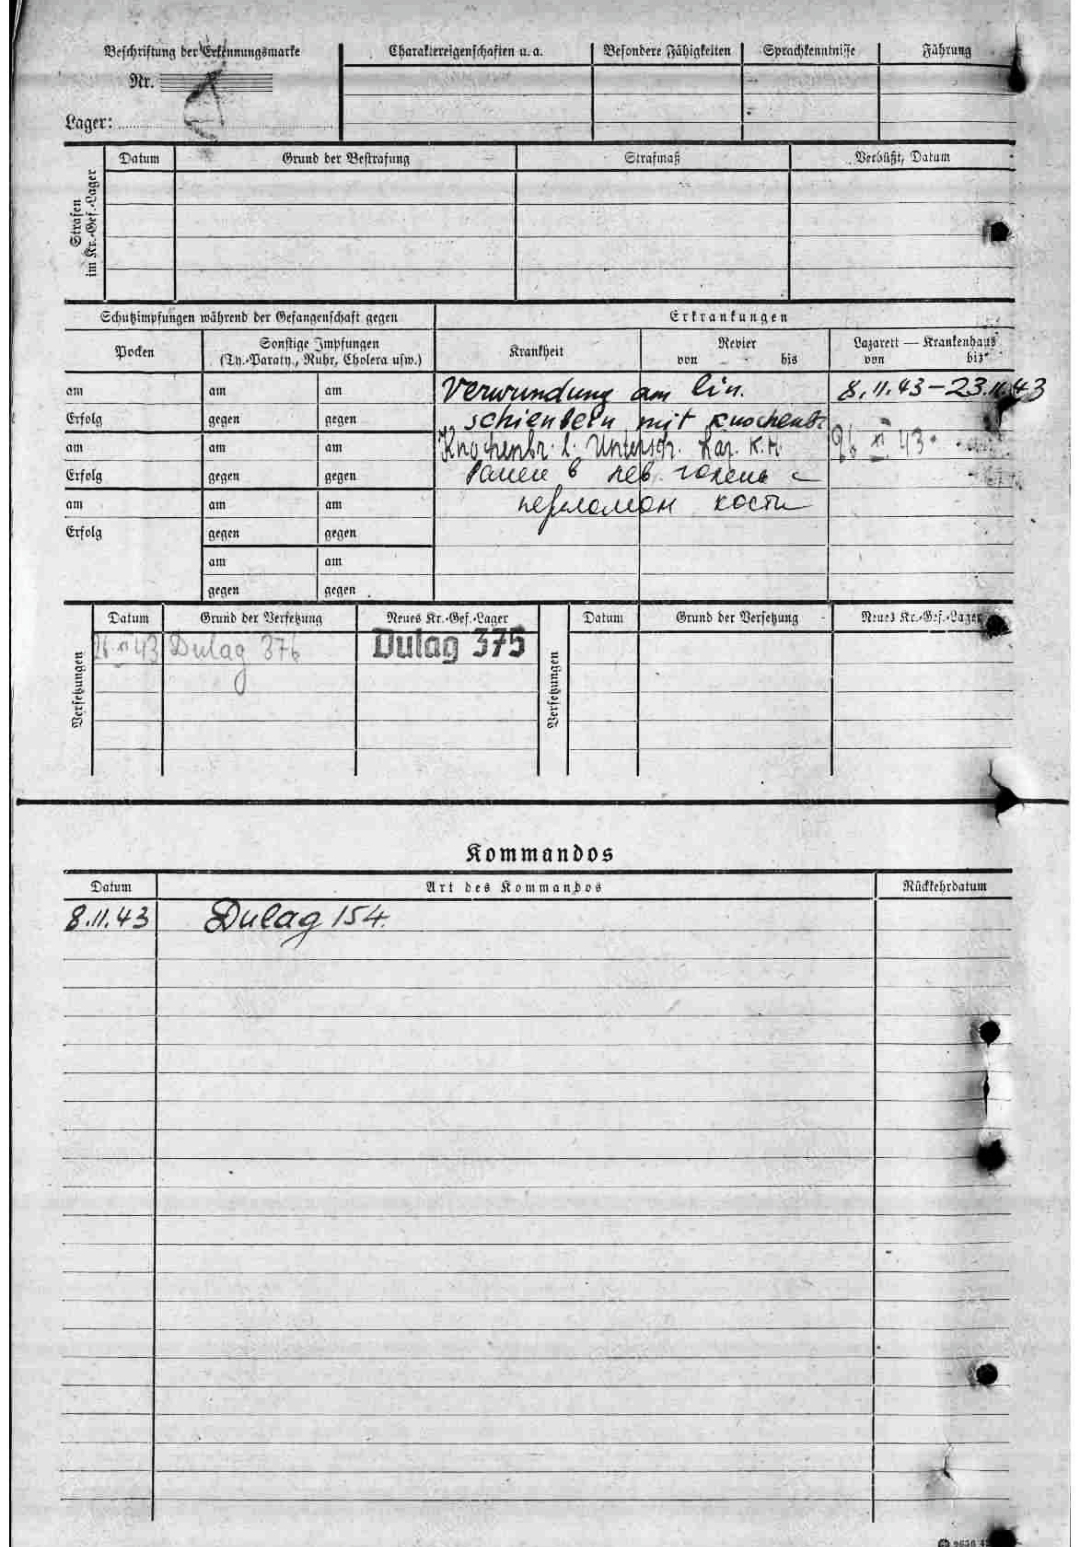 Beschriftung der Erkennungsmarke
Nr.
Lager:
Charaktereigenschaften u. a.
Besondere Fähigkeiten
Sprachkenntnisse
Führung
Strafen
im Kr.-Gef.-Lager
Datum
Grund der Bestrafung
Strafmaß
Verbüßt, Datum
Schutzimpfungen während der Gefangenschaft gegen
Erkrankungen
Pocken
Sonstige Impfungen
(Ty.-Paraty., Ruhr, Cholera usw.)
Krankheit
Revier
von bis
Lazarett — Krankenhaus
von bis
am am am
Verwundung am lin. 8.11.43-23.11.43
Erfolg gegen gegen
schienbein mit
am am am
Knochenbr. l. Untersch. 26 XI 43
Erfolg gegen gegen
Ранен в лев. голень с
am am am
переломом кости
Erfolg gegen gegen
am am
gegen gegen
Versetzungen
Datum Grund der Versetzung Neues Kr.-Gef.-Lager
26 XI 43 Dulag 376 Dulag 375
Versetzungen
Datum Grund der Versetzung Neues Kr.-Gef.-Lager
Kommandos
Datum Art des Kommandos Rückkehrdatum
8.11.43 Dulag 154.